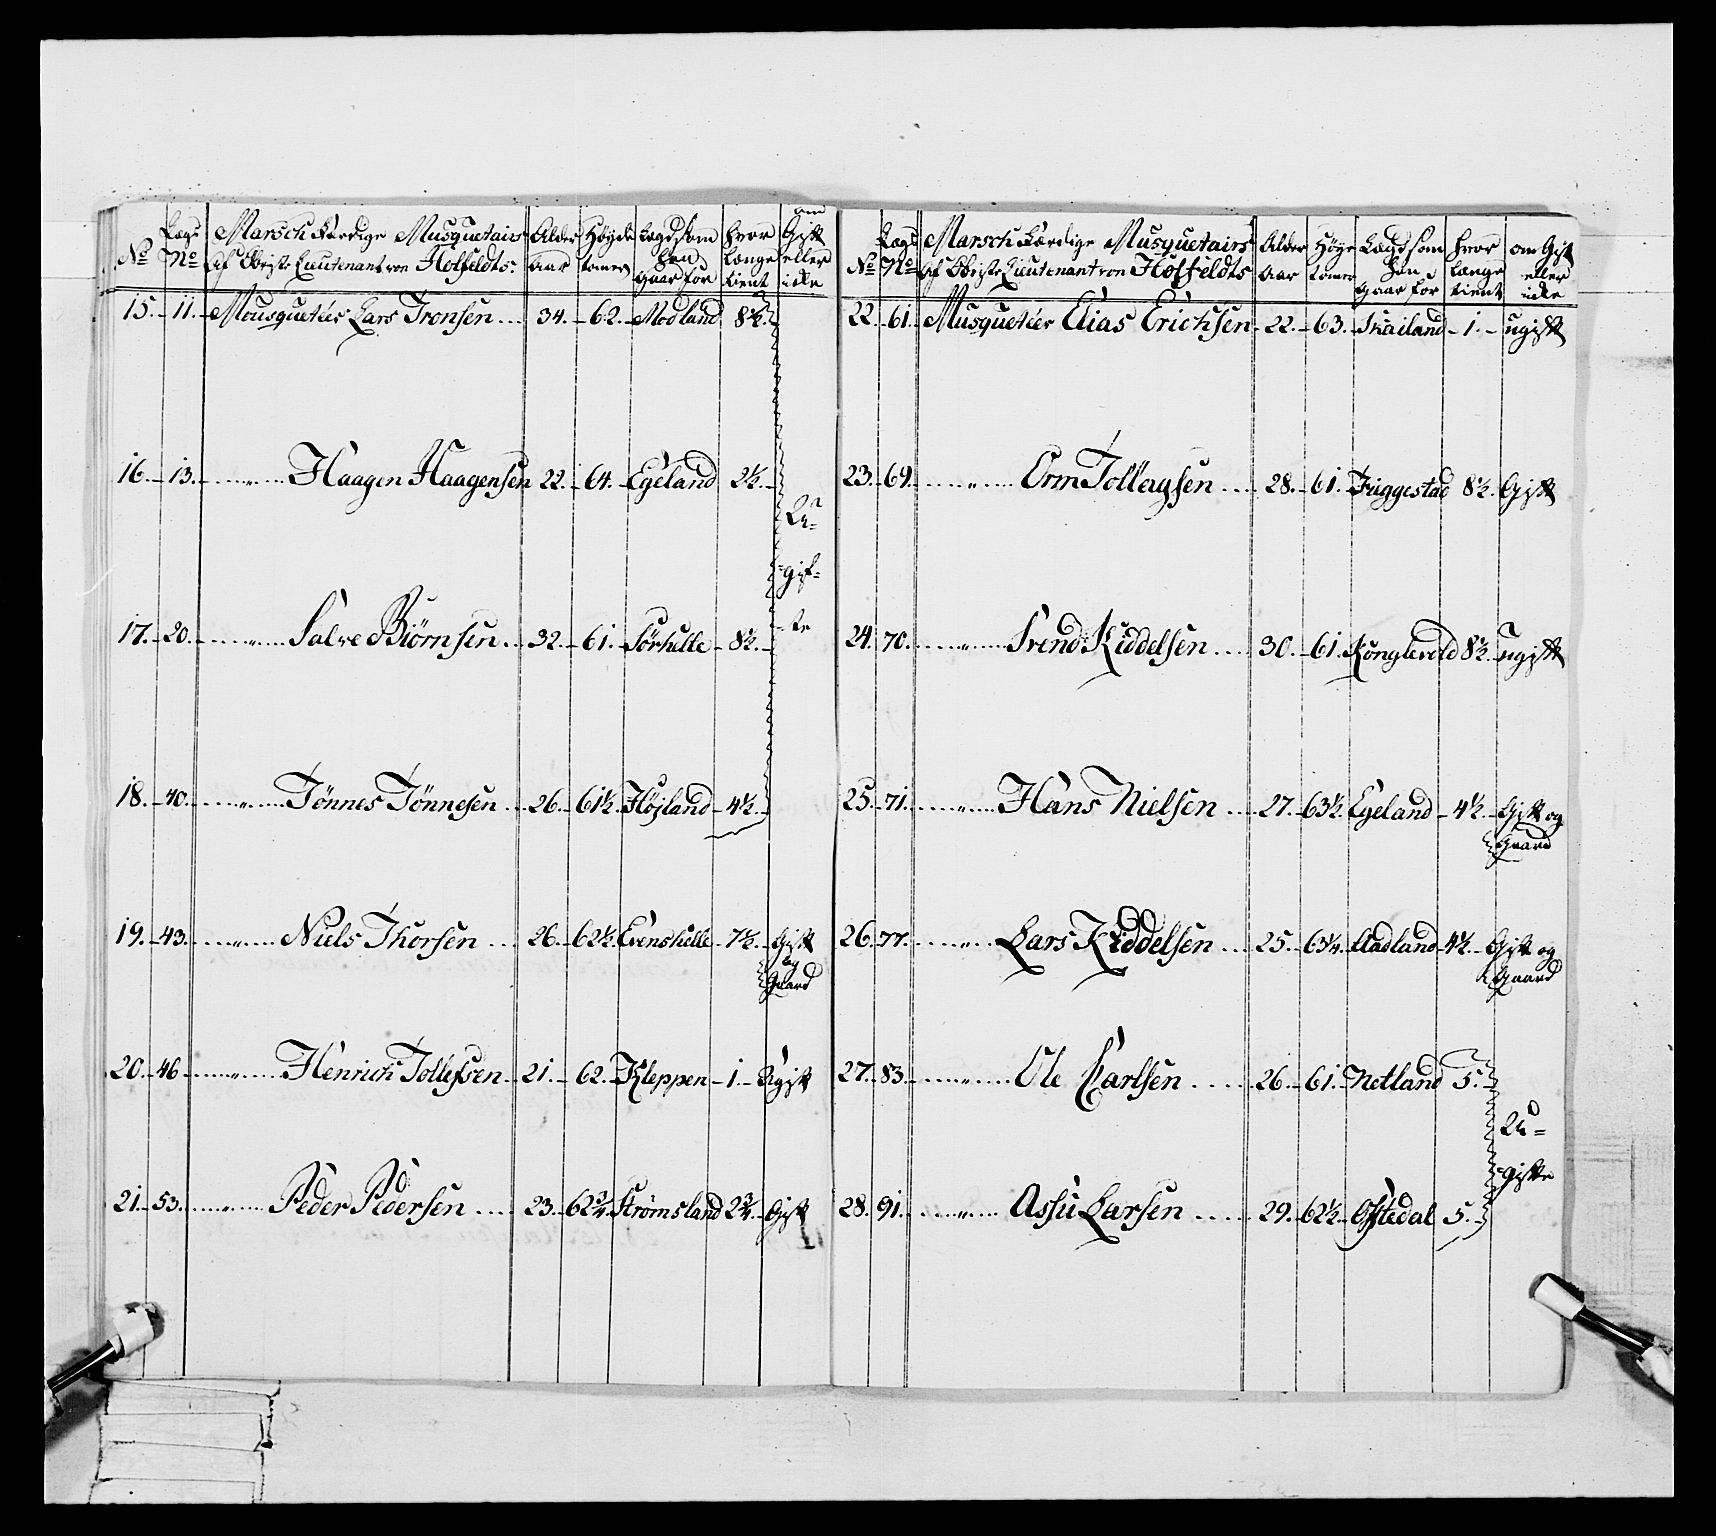 No Lægs No Marsch Færdige Musquetairs Af Obriste Lieutenant von Holfeldts: Alder Aar Høyde tomer Lægd som han gaar for hvor længe tient om Gift eller icke
15. 11. Mousqueteer Lars Tronsen 34. 62. Modland 8½.
16. 13. " Haagen Haagensen 22. 64. Egeland 2½.
17. 20. " Salve Biørnsen 32. 61. Sørhulle 8½.
18. 40. " Tønnes Tønnesen 26. 61½. Højland 4½.
U=
=gif=
=te
19. 43. " Niels Thorsen 26. 62½. Evenshelle 7½. Gift
og
Gaard
20. 46. " Henrich Tollefsen 21. 62. Kleppen 1. Ugift
21. 53. " Peder Pedersen 23. 62¾. Strømsland 2¾. Gift
No Lægs No Marsch Færdige Musquetairs Af Obriste Lieutenant von Holfeldts Alder Aar Høye tomer Lægd som han gaar for hvor længe tient om Gift eller icke
22. 61. Musqueteer Elias Erichsen 22. 63. Skailand 1. ugift
23. 69. " Orm Tollaysen 28. 61. Friggestad 8½. Gift
24. 70. " Svend Kiddelsen 30. 61. Konglevold 8½. ugift
25. 71. " Hans Nielsen 27. 63½. Egeland 4½. Gift og
Gaard
26. 77. " Lars Kiddelsen 25. 63¼. Aadland 4½. Gift og
Gaard
27. 83. " Ole Carlsen 26. 61. Netland 5.
28. 91. " Assu Larsen 29. 62½. Ofstedal 5.
U=
=gifte